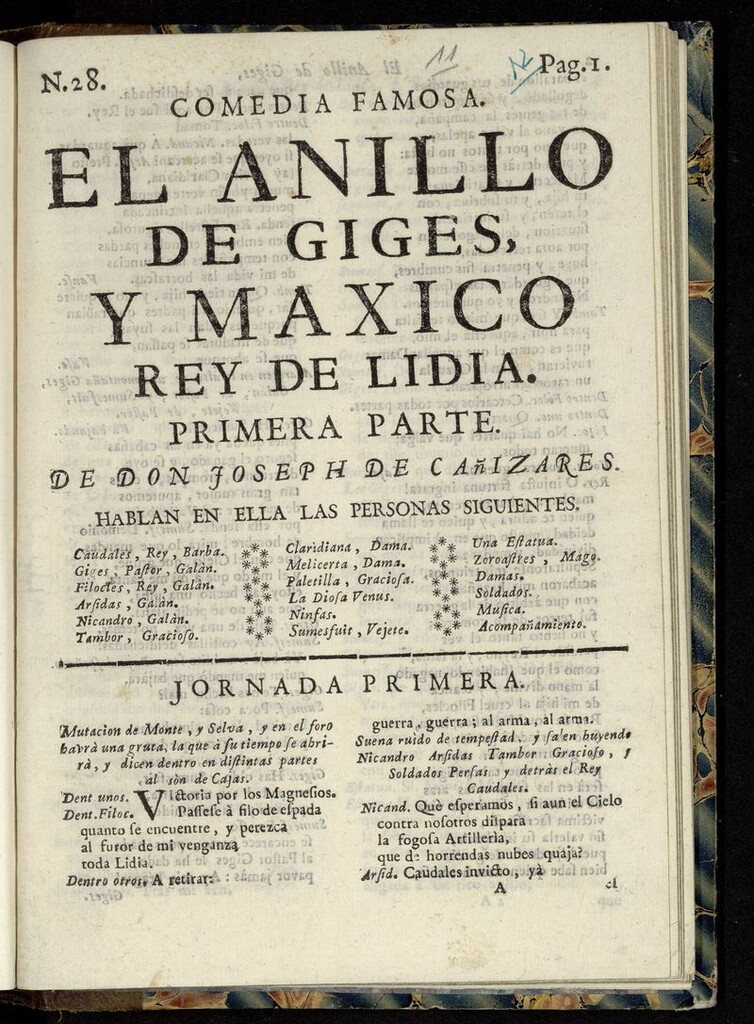 N.28.
11
12
Pag.1.
COMEDIA FAMOSA.
EL ANILLO
DE GIGES,
Y MAXICO
REY DE LIDIA.
PRIMERA PARTE.
DE DON JOSEPH DE CAñIZARES.
HABLAN EN ELLA LAS PERSONAS SIGUIENTES.
Caudales, Rey, Barba.
Giges, Paſtor, Galàn.
Filoctes, Rey, Galàn.
Arſidas, Galàn.
Nicandro, Galàn.
Tambor, Gracioſo.
Claridiana, Dama.
Melicerta, Dama.
Paletilla, Gracioſa.
La Dioſa Venus.
Ninfas.
Sumesfuit, Vejete.
Una Eſtatua.
Zoroaſtres, Mago.
Damas.
Soldados.
Muſica.
Acompañamiento.
JORNADA PRIMERA.
Mutacion de Monte, y Selva, y en el foro
havrà una gruta, la que à ſu tiempo ſe abri-
rà, y dicen dentro en diſtintas partes
al sòn de Cajas.
Dent unos. VIctoria por los Magneſios.
Dent. Filoc. Paſſeſe à filo de eſpada
quanto ſe encuentre, y perezca
al furor de mi venganza
toda Lidia.
Dentro otros. A retirar.
guerra, guerra; al arma, al arma.
Suena ruido de tempeſtad, y ſalen huyendo
Nicandro Arſidas Tambor Gracioſo, y
Soldados Perſas y detràs el Rey
Caudales.
Nicand. Què eſperamos, ſi aun el Cielo
contra noſotros diſpara
la fogoſa Artillerìa,
que de horrendas nubes quaja?
Arſid. Caudales invicto, yà
A
el